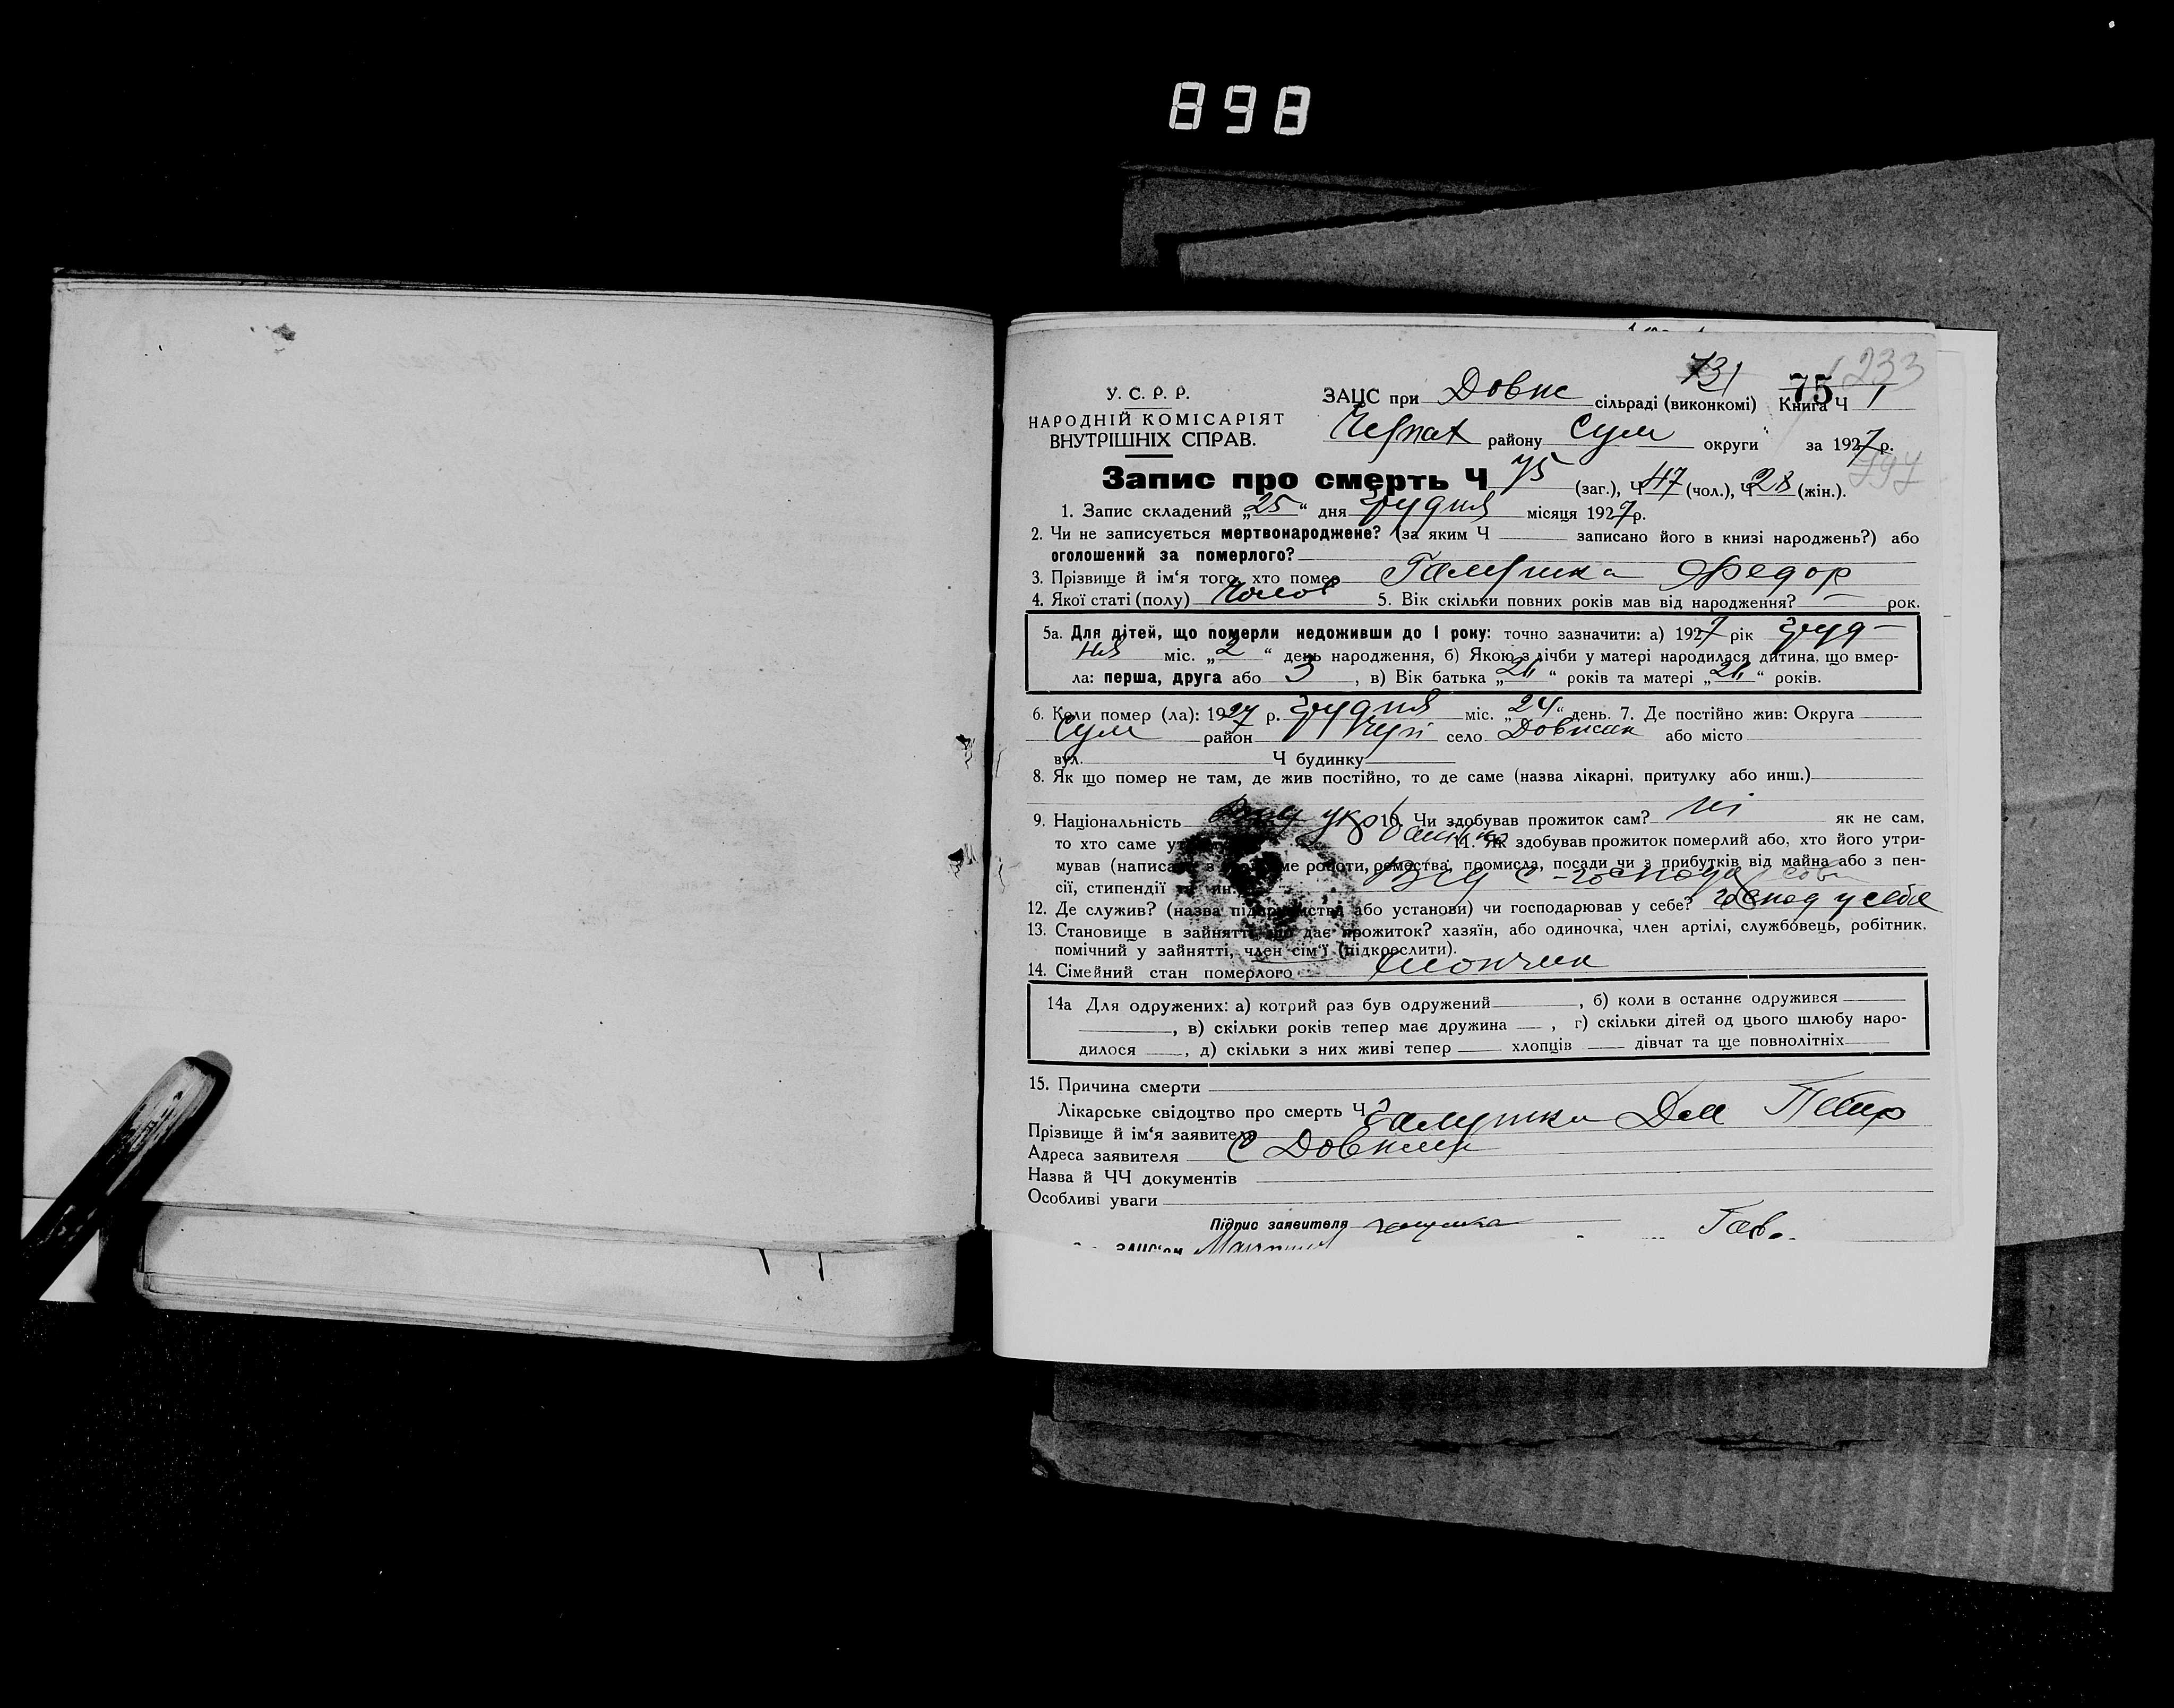 898
731 75 233
У. С. Р. Р.
НАРОДНІЙ КОМІСАРІЯТ
ВНУТРІШНІХ СПРАВ.
ЗАЦС при Довж сільраді (виконкомі) Книга Ч 1
району Сум округи за 1927 р.
Запис про смерть Ч 75 (заг.), Ч 47 (чол.), Ч 28 (жін.).
1. Запис складений „25“ дня грудня місяця 1927 р.
2. Чи не записується мертвонароджене? (за яким Ч записано його в книзі народжень?) або
оголошений за померлого?
3. Прізвище й ім‘я того, хто помер Галушка Федор
4. Якої статі (полу) Чолов 5. Вік скільки повних років мав від народження? рок.
5а. Для дітей, що померли недоживши до 1 року: точно зазначити: а) 1927 рік груд-
ня міс. „2“ день народження, б) Якою з лічби у матері народилася дитина, що вмер-
ла: перша, друга або 3, в) Вік батька „ “ років та матері „ “ років.
6. Коли помер (ла): 1927 р. грудня міс. „24“ день. 7. Де постійно жив: Округа
Сум район село або місто
вул. Ч будинку
8. Як що помер не там, де жив постійно, то де саме (назва лікарні, притулку або инш.)
9. Національність укр 10. Чи здобував прожиток сам? ні як не сам,
то хто саме батько 11. Як здобував прожиток померлий або, хто його утри-
мував (написа роботи, ремества, промисла, посади чи з прибутків від майна або з пен-
сії, стипендії
12. Де служив? (назва підприємства або установи) чи господарював у себе? господ у себя
13. Становище в зайнятті що дає прожиток? хазяїн, або одиночка, член артілі, службовець, робітник,
помічний у зайнятті, член сім‘ї (підкреслити).
14. Сімейний стан померлого
14а Для одружених: а) котрий раз був одружений , б) коли в останнє одружився
, в) скільки років тепер має дружина , г) скільки дітей од цього шлюбу наро-
дилося , д) скільки з них живі тепер хлопців дівчат та ще повнолітніх
15. Причина смерти
Лікарське свідоцтво про смерть Ч
Прізвище й ім‘я заявителя Галушка Петр
Адреса заявителя с
Назва й ЧЧ документів
Особливі уваги
Підпис заявителя Галушка